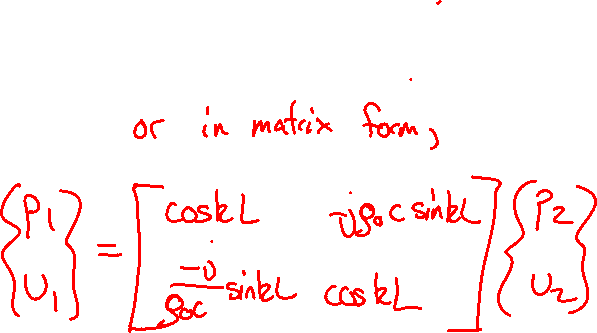 or in matrix form,
{P1 U1} = [cos kL -jρ₀c sin kL; -j/ρ₀c sin kL cos kL] {P2 U2}